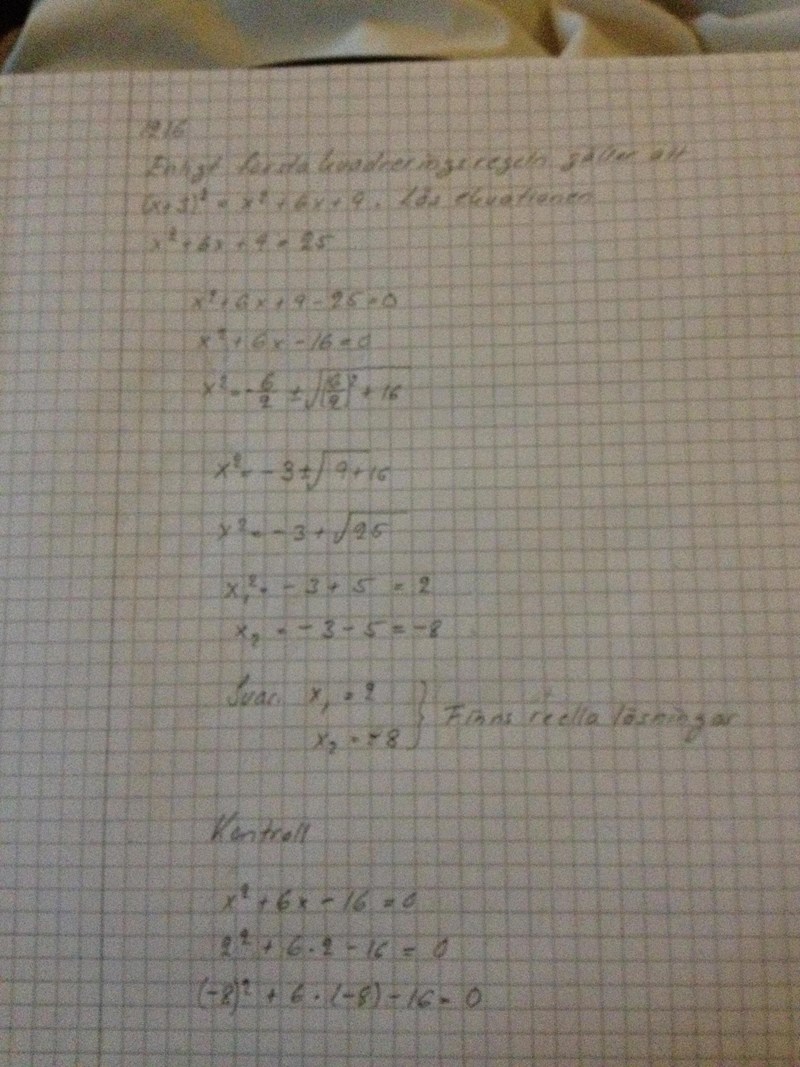 1216
Enligt första kvadreringsregeln gäller att
(x+3)² = x² + 6x + 9. Lös ekvationen
x² + 6x + 9 = 25
x² + 6x + 9 - 25 = 0
x² + 6x - 16 = 0
x² = -6/2 ± √(6/2)² + 16
x² = -3 ± √9+16
x² = -3 + √25
x₁² = -3 + 5 = 2
x₂ = -3 - 5 = -8
Svar: x₁ = 2
x₂ = -8 } Finns reella lösningar
Kontroll
x² + 6x - 16 = 0
2² + 6·2 - 16 = 0
(-8)² + 6·(-8) - 16 = 0